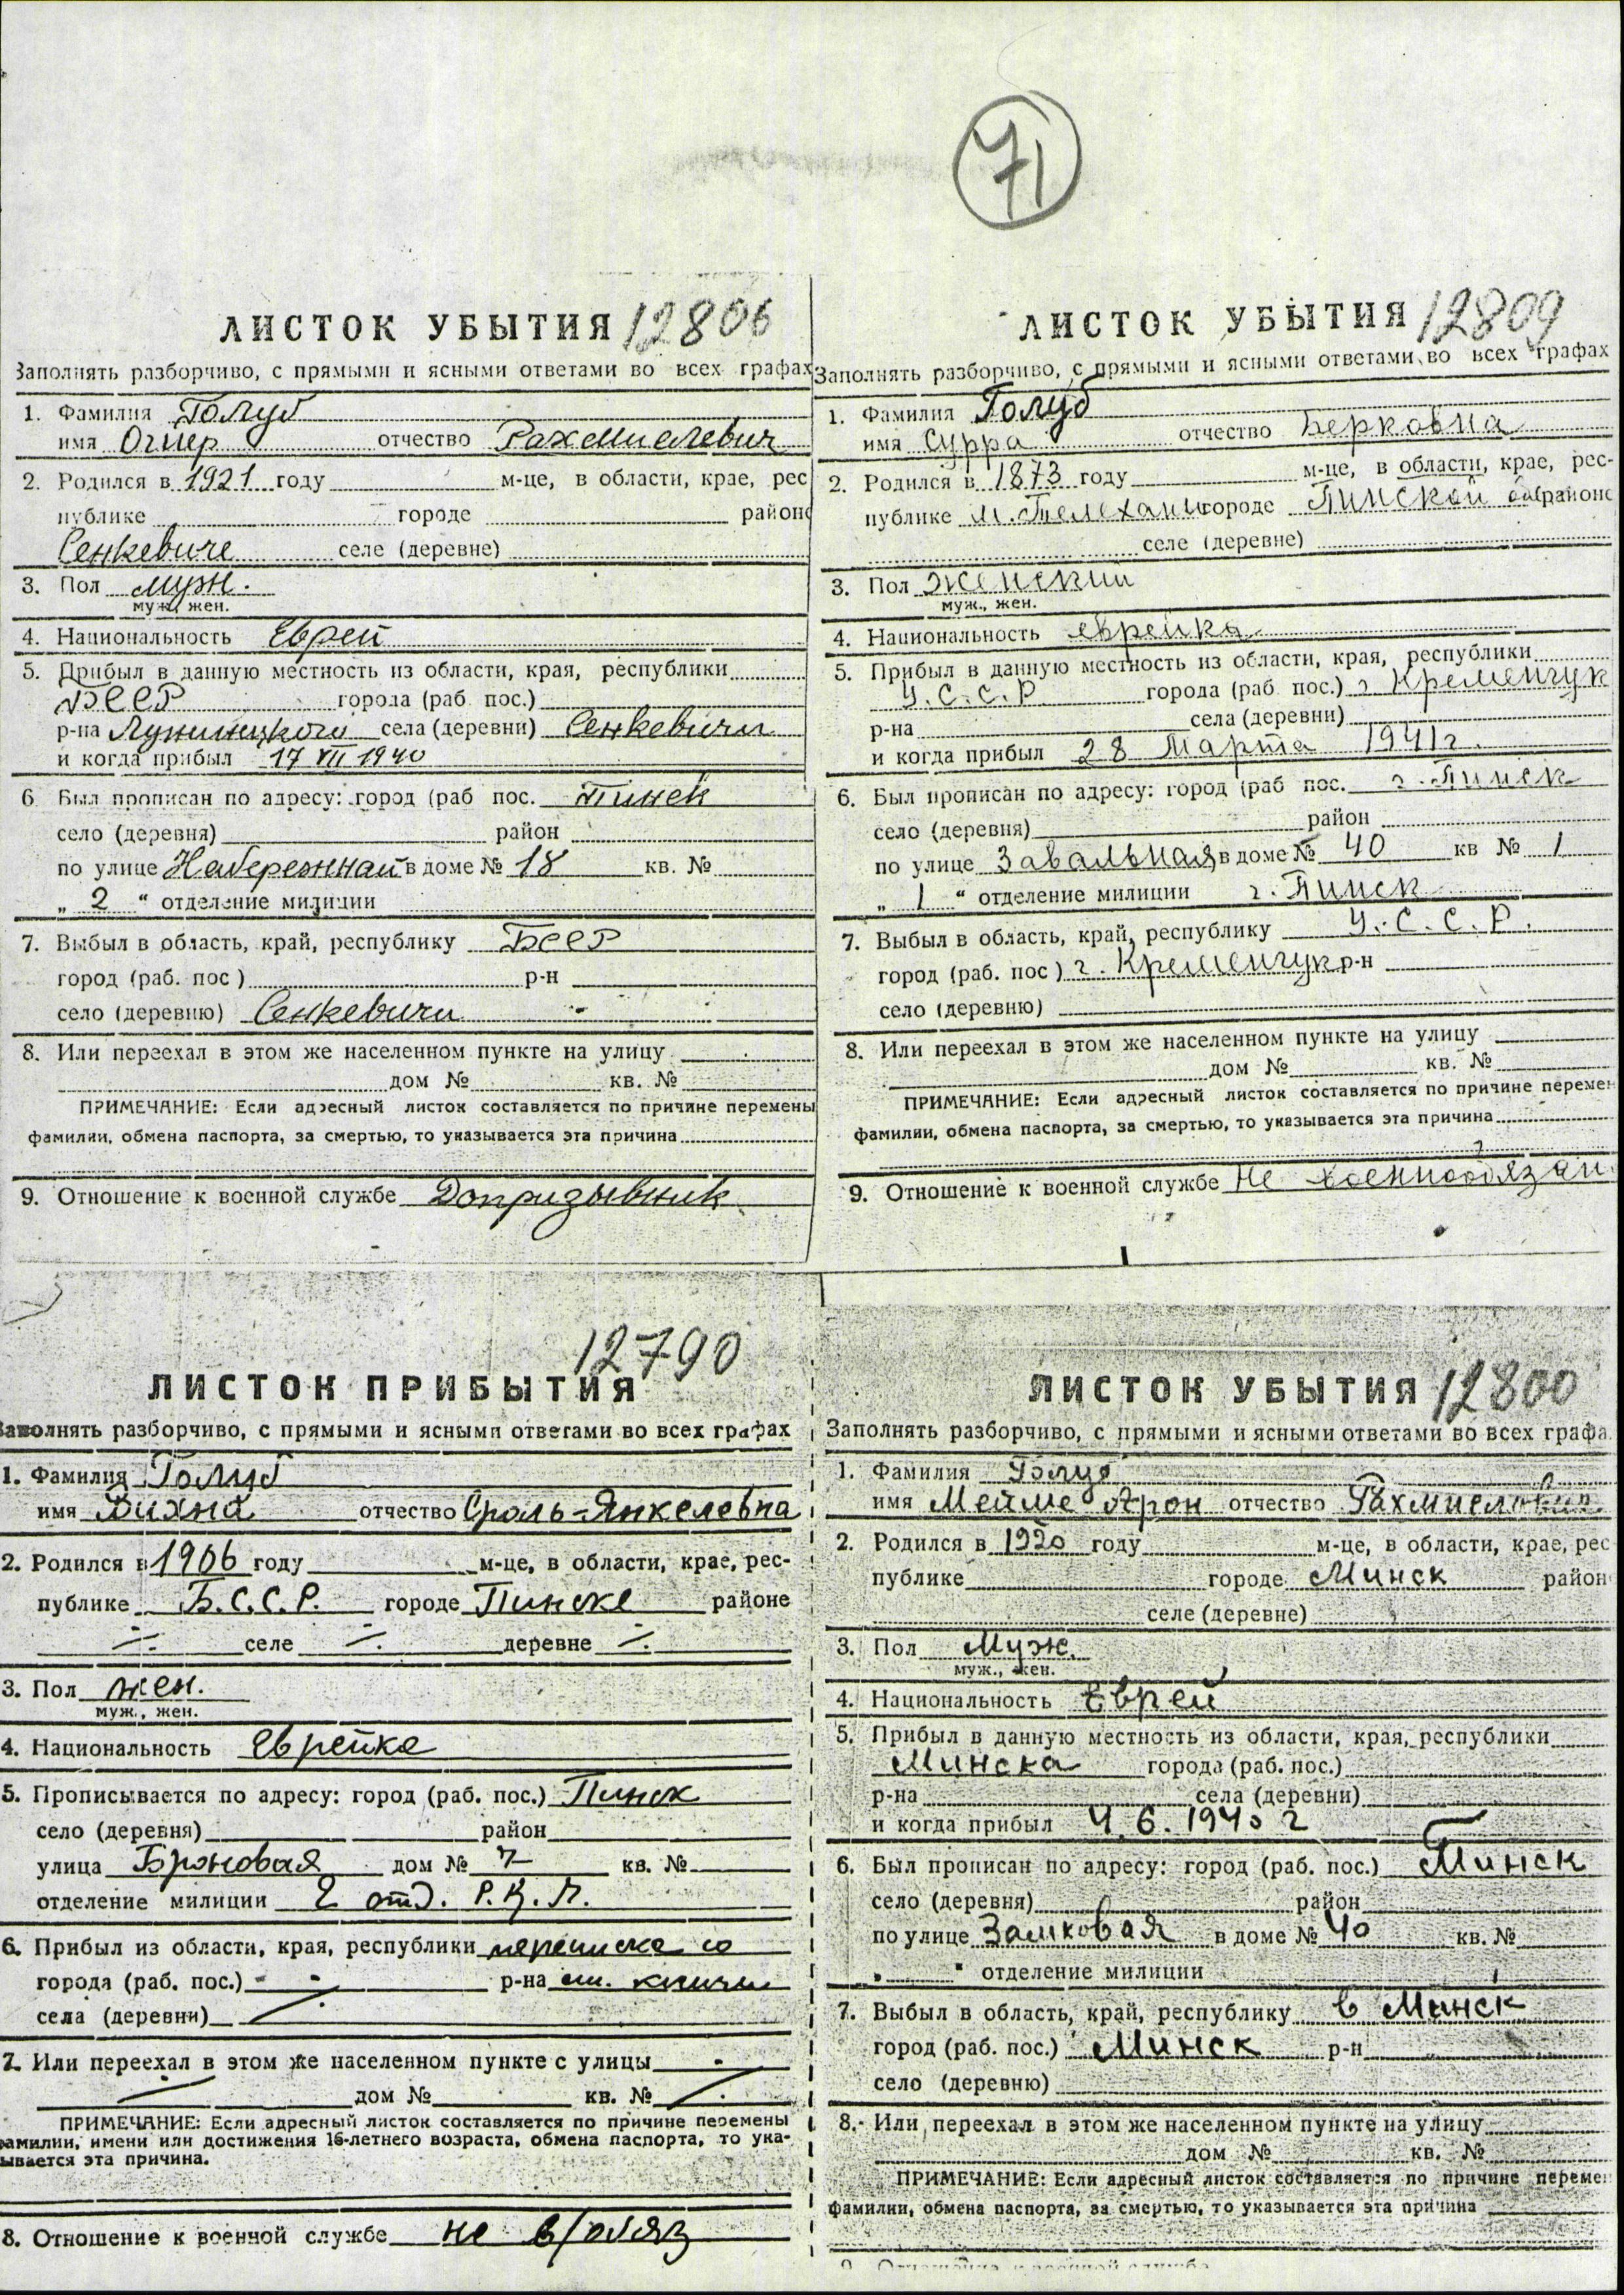 71
ЛИСТОК УБЫТИЯ 12806
Заполнять разборчиво, с прямыми и ясными ответами во всех графах
1. Фамилия Голуб
имя Ошер отчество Рахмиелевич
2. Родился в 1921 году м-це, в области, крае, рес
публике городе районе
Сенкевиче селе (деревне)
3. Пол муж.
муж., жен.
4. Национальность Еврей
5. Прибыл в данную местность из области, края, республики
БССР города (раб. пос.)
р-на Лунинецкого села (деревни) Сенкевичи
и когда прибыл 17 VII 1940
6. Был прописан по адресу: город (раб пос. Пинск
село (деревня) район
по улице Набережная в доме № 18 кв. №
„ 2 “ отделение милиции
7. Выбыл в область, край, республику БССР
город (раб. пос ) р-н
село (деревню) Сенкевичи
8. Или переехал в этом же населенном пункте на улицу
дом № кв. №
ПРИМЕЧАНИЕ: Если адресный листок составляется по причине перемены
фамилии, обмена паспорта, за смертью, то указывается эта причина
9. Отношение к военной службе Допризывник
ЛИСТОК УБЫТИЯ 12809
Заполнять разборчиво, с прямыми и ясными ответами во всех графах
1. Фамилия Голуб
имя Сурра отчество Берковна
2. Родился в 1873 году м-це, в области, крае, рес-
публике м. Телеханы городе Пинской об районе
селе (деревне)
3. Пол Женский
муж., жен.
4. Национальность еврейка
5. Прибыл в данную местность из области, края, республики
У.С.С.Р. города (раб. пос.) г Кременчук
р-на села (деревни)
и когда прибыл 28 Марта 1941г.
6. Был прописан по адресу: город (раб пос. г. Пинск
село (деревня) район
по улице Завальная в доме № 40 кв № 1
„ 1 “ отделение милиции г. Пинск
7. Выбыл в область, край, республику У.С.С.Р.
город (раб. пос ) г. Кременчук р-н
село (деревню)
8. Или переехал в этом же населенном пункте на улицу
дом № кв. №
ПРИМЕЧАНИЕ: Если адресный листок составляется по причине перемен
фамилии, обмена паспорта, за смертью, то указывается эта причина
9. Отношение к военной службе Не военнообязан.
12790
ЛИСТОК ПРИБЫТИЯ
Заполнять разборчиво, с прямыми и ясными ответами во всех графах
1. Фамилия Голуб
имя Вихна отчество Сроль-Янкелевна
2. Родился в 1906 году м-це, в области, крае, рес-
публике Б.С.С.Р. городе Пинске районе
селе деревне
3. Пол жен.
муж., жен.
4. Национальность Еврейка
5. Прописывается по адресу: город (раб. пос.) Пинск
село (деревня) район
улица Броновая дом № 7 кв. №
отделение милиции 2 отд. Р.К.М.
6. Прибыл из области, края, республики переписка со
города (раб. пос.) р-на ст. книги
села (деревни)
7. Или переехал в этом же населенном пункте с улицы
дом № кв. №
ПРИМЕЧАНИЕ: Если адресный листок составляется по причине перемены
фамилии, имени или достижения 16-летнего возраста, обмена паспорта, то ука-
зывается эта причина.
8. Отношение к военной службе не в/обяз
ЛИСТОК УБЫТИЯ 12800
Заполнять разборчиво, с прямыми и ясными ответами во всех графа
1. Фамилия Голуб
имя Мейше Арон отчество Рахмиелович
2. Родился в 1920 году м-це, в области, крае, рес
публике городе Минск район
селе (деревне)
3. Пол Муж.
муж., жен.
4. Национальность Еврей
5. Прибыл в данную местность из области, края, республики
Минска города (раб. пос.)
р-на села (деревни)
и когда прибыл 4.6.1940 г
6. Был прописан по адресу: город (раб. пос.) Пинск
село (деревня) район
по улице Замковая в доме № 40 кв. №
„ “ отделение милиции
7. Выбыл в область, край, республику в Минск
город (раб. пос.) Минск р-н
село (деревню)
8. Или переехал в этом же населенном пункте на улицу
дом № кв. №
ПРИМЕЧАНИЕ: Если адресный листок составляется по причине переме
фамилии, обмена паспорта, за смертью, то указывается эта причина